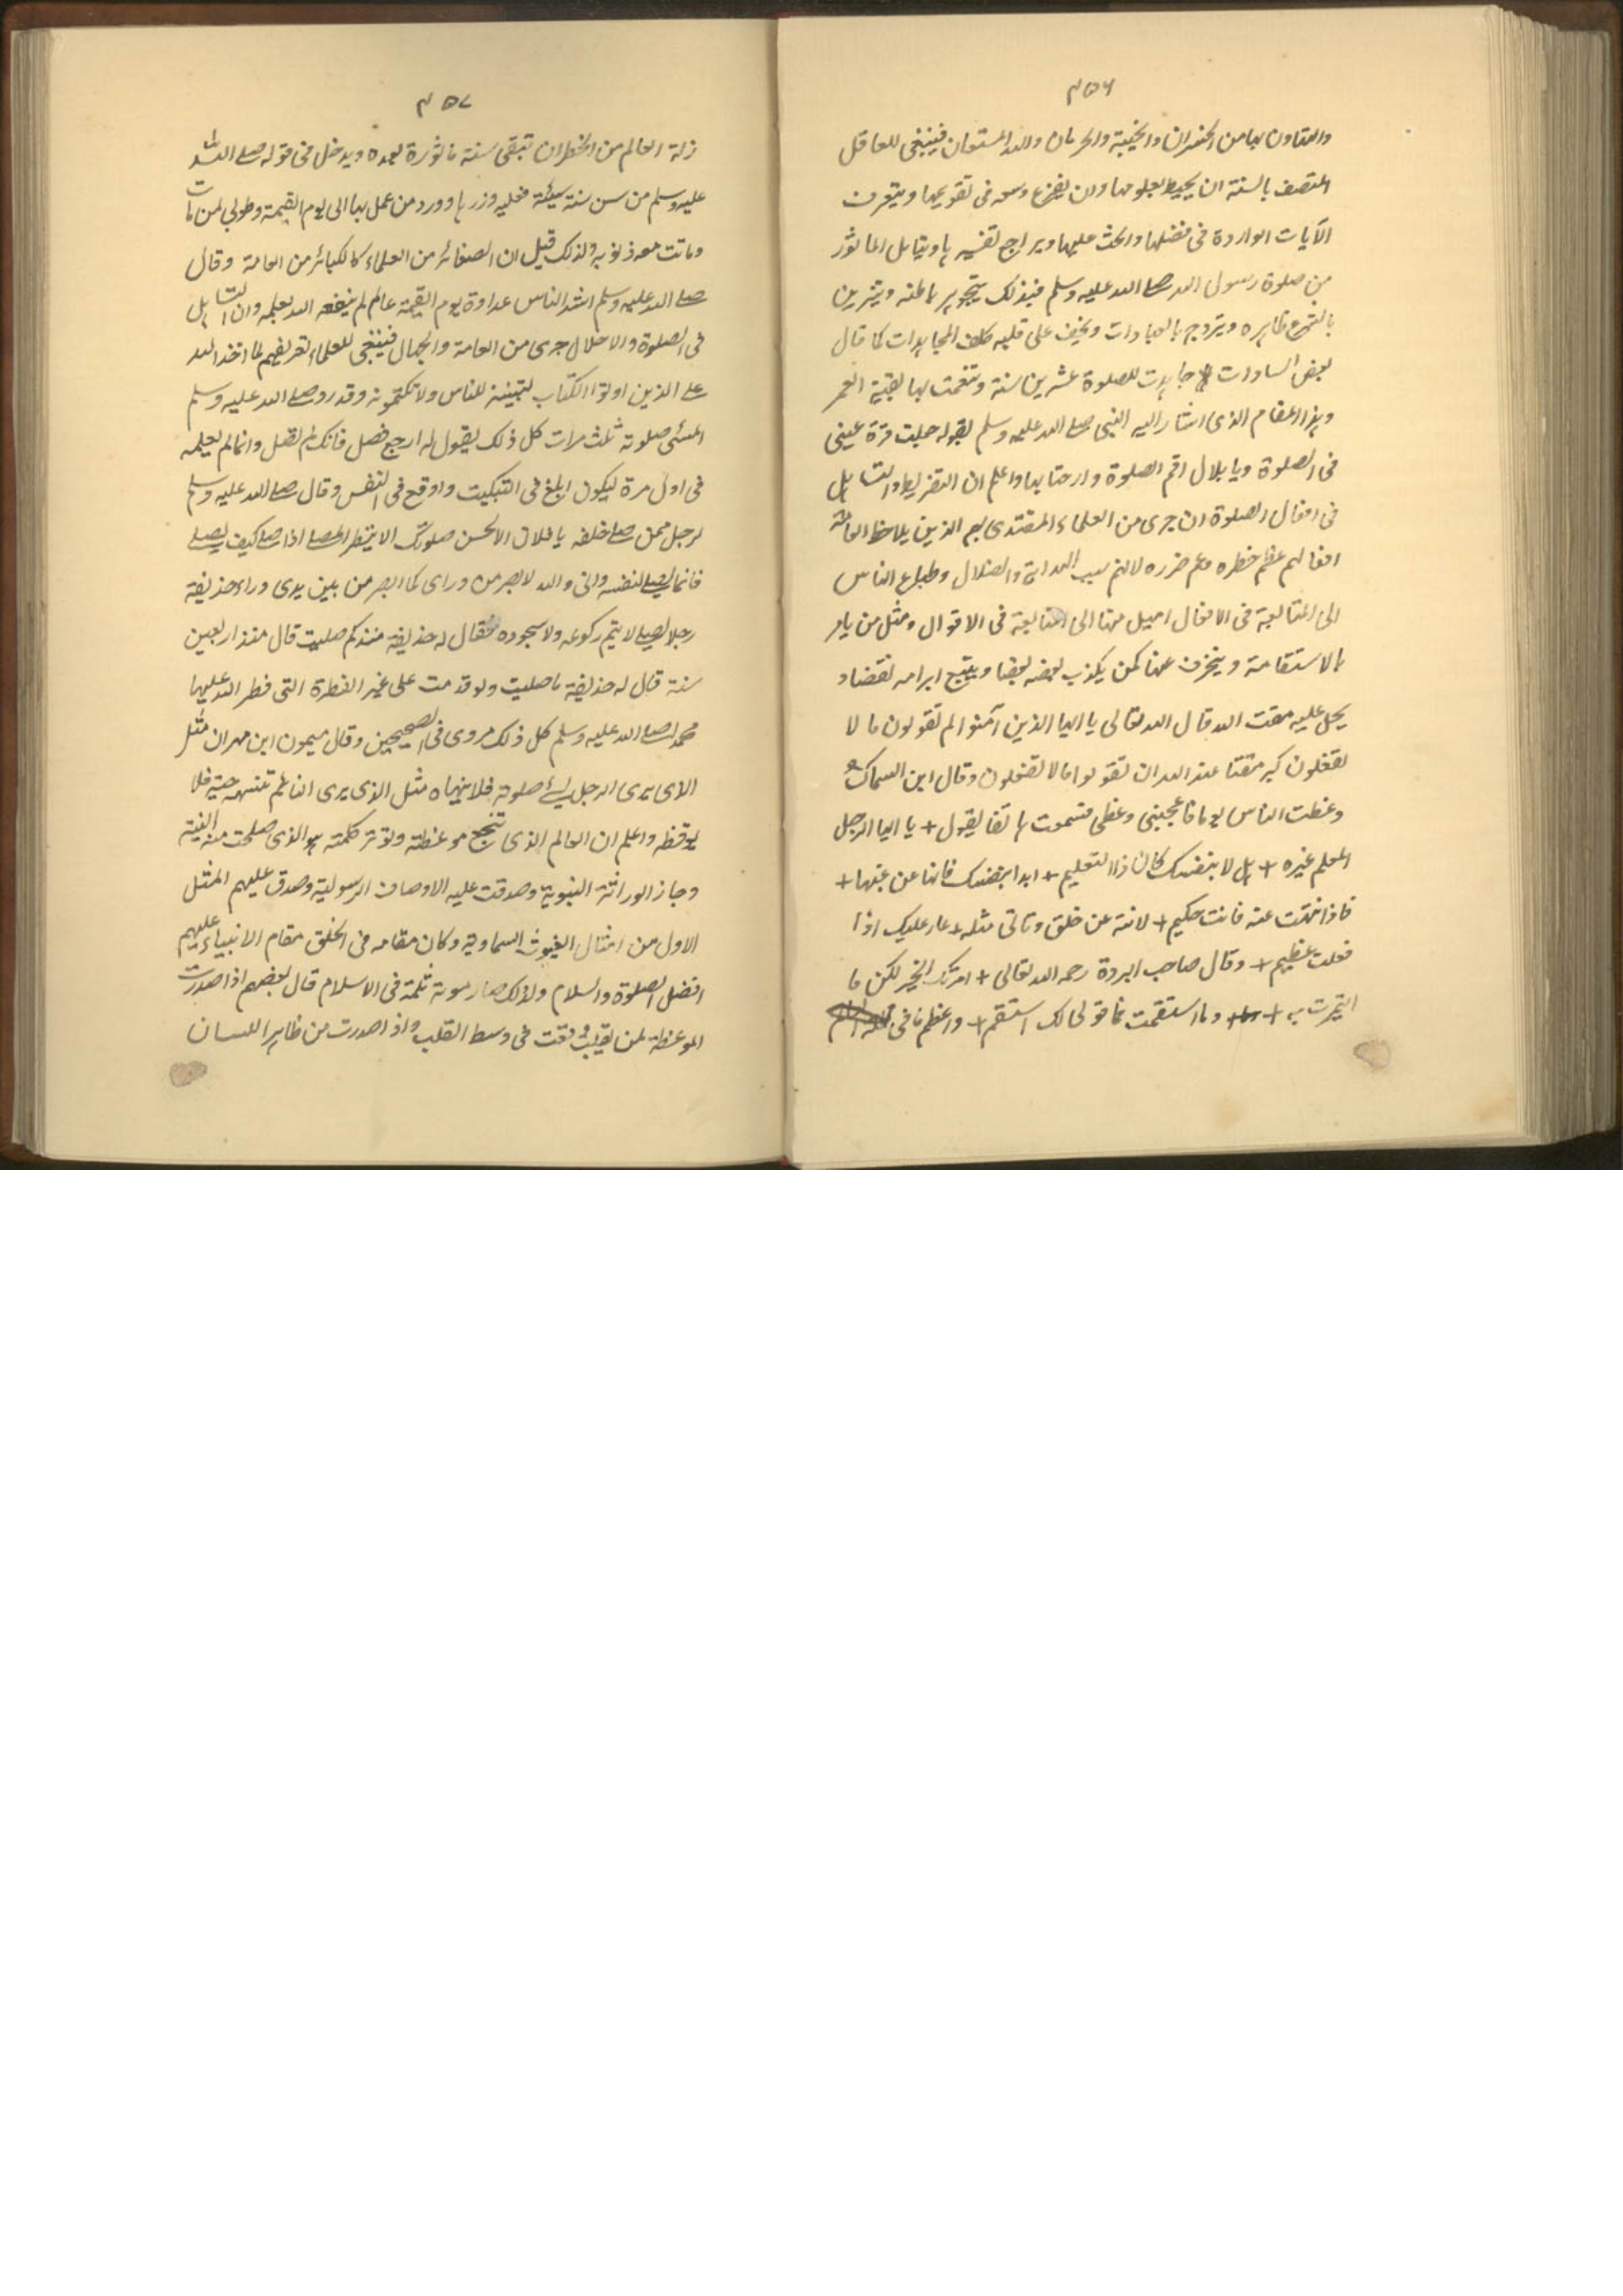 ۴۵۶
والتهاون بها من الخسران والخيبة والحرمان والله المستعان فينبغي للعاقل
المتصف بالسنة ان يحيط بعلومها وان يفرغ وسعه في تقويمها ويتعرف
الآيات الواردة في فضلها والحث عليها ويراجع تفسيرها ويتأمل الماثور
من صلوة رسول الله صلے الله عليه وسلم فبذلك يتجوهر باطنه ويتزين
بالتشرع ظاهره ويتروح بالعبادات ويخف على قلبه كلف المجاهدات كما قال
بعض السادات جاهدت للصلوة عشرين سنة وتنعمت بها بقية العمر
وهذا المقام الذي اشار اليه النبي صلے الله عليه وسلم بقوله جعلت قرة عيني
في الصلوة ويا بلال اقم الصلوة وارحنا بها واعلم ان التفريط والتساهل
في افعال الصلوة ان جرى من العلماء المقتدى بهم الذين يلاحظ العامة
افعالهم عظم خطره وعم ضرره لانهم سبب الهداية والضلال وطباع الناس
الى المتابعة في الافعال اميل منها الى المتابعة في الاقوال ومثل من يامر
بالاستقامة وينحرف عنها كمن يكذب بعضه بعضا ويتبع ابرامه نقضا و
يحل عليه مقت الله قال الله تعالى يا ايها الذين آمنوا لم تقولون ما لا
تفعلون كبر مقتا عند الله ان تقولوا ما لا تفعلون وقال ابن السماك
وعظت الناس يوما فاعجبني وعظي فسمعت هاتفا يقول + يا ايها الرجل
المعلم غيره + هل لا بنفسك كان ذا التعليم + ابدا بنفسك فانهها عن غيها +
فاذا انتهت عنه فانت حكيم + لا تنه عن خلق وتاتي مثله + عار عليك اذا
فعلت عظيم + وقال صاحب البردة رحمه الله تعالى + امرتك الخير لكن ما
ائتمرت به + وما استقمت فما قولي لك استقم + واعظم ما في
۴۵۷
زلة العالم من الخطر ان تبقى سنة ماثورة بعده ويدخل في قوله صلے الله
عليه وسلم من سن سنة سيئة فعليه وزرها ووزر من عمل بها الى يوم القيمة وطوبى لمن مات
وماتت معه ذنوبه ولذلك قيل ان الصغائر من العلماء كالكبائر من العامة وقال
صلے الله عليه وسلم اشد الناس عداوة يوم القيمة عالم لم ينفعه الله بعلمه وان التساهل
في الصلوة والاخلال جرى من العامة والجهال فينبغي للعلماء تعريفهم لما اخذ الله
علے الذين اوتوا الكتاب لتبيننه للناس ولا تكتمونه وقد رد صلے الله عليه وسلم
المسئ صلوته ثلث مرات كل ذلك يقول له ارجع فصل فانك لم تصل وانما لم يعلمه
في اول مرة ليكون ابلغ في التبكيت واوقع في النفس وقال صلے الله عليه وسلم
لرجل ممن صلے خلفه يا فلان الا تحسن صلوتك الا ينظر المصلے اذا صلے كيف يصلے
فانما يصلے لنفسه واني والله لابصر من وراى كما ابصر من بين يدى وراى حذيفة
رجلا يصلے لا يتم ركوعه ولا سجوده فقال له حذيفة منذ كم صليت قال منذ اربعين
سنة قال له حذيفة ما صليت ولو قد مت على غير الفطرة التي فطر الله عليها
محمدا صلے الله عليه وسلم كل ذلك مروى في الصحيحين وقال ميمون ابن مهران مثل
الذى يرى الرجل يسئ صلوته فلا ينهاه مثل الذى يرى النائم تنهشه حية فلا
يوقظه واعلم ان العالم الذى تنجع موعظته وتوثر كلمته هو الذى صلحت منه النية
وحاز الوراثة النبوية وصدقت عليه الاوصاف الرسولية وصدق عليهم المثل
الاول من امثال الغيوث السماوية وكان مقامه في الخلق مقام الانبياء عليهم
افضل الصلوة والسلام ولذلك صار موته ثلمة في الاسلام قال بعضهم اذا صدرت
الموعظة لمن وقعت في وسط القلب واذا صدرت من ظاهر اللسان